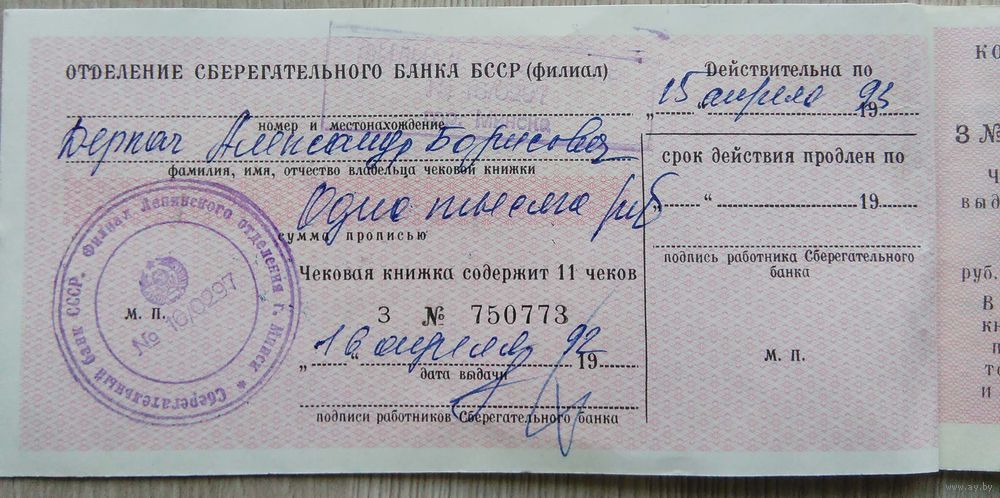 ОТДЕЛЕНИЕ СБЕРЕГАТЕЛЬНОГО БАНКА БССР (филиал)
номер и местонахождение
Деркач Александр Борисович
фамилия, имя, отчество владельца чековой книжки
Одна тысяча руб
сумма прописью
Чековая книжка содержит 11 чеков
З № 750773
„16“ апреля 1992
дата выдачи
подписи работников Сберегательного банка
М. П.
Сберегательный банк СССР. Филиал Ленинского отделения г. Минск
№ 16/0297
Действительна по
„15“ апреля 1993
срок действия продлен по
„ “ 19
подпись работника Сберегательного
банка
М. П.
КО
З №
Ч
выд
руб.
В
кн
п
то
и
www.ay.by